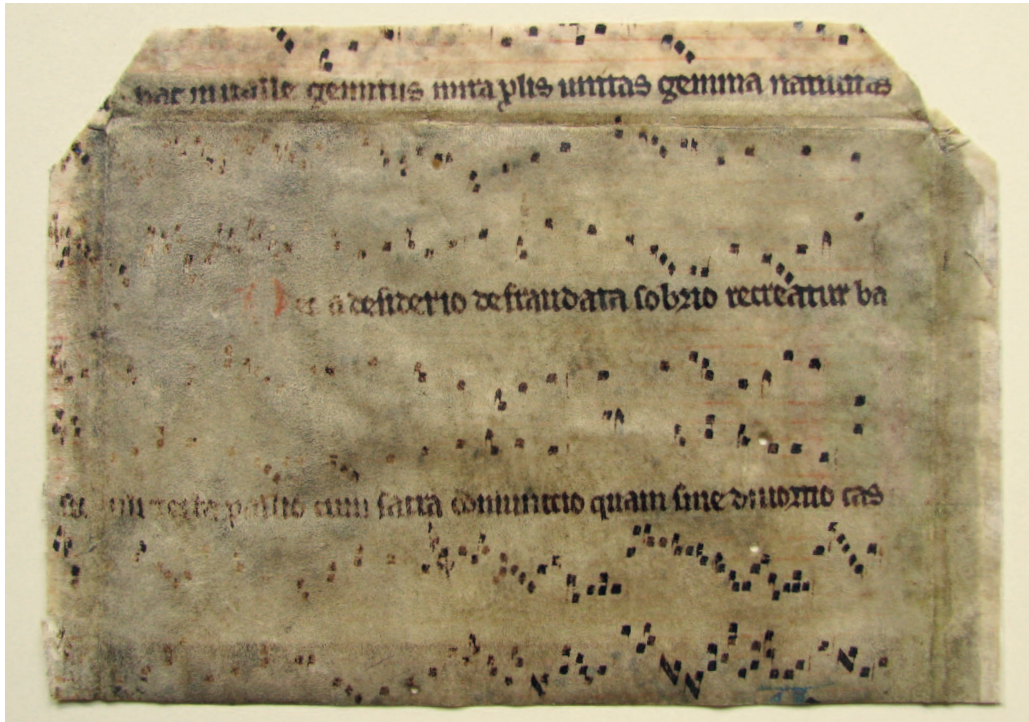 hac in ualle gemitus mira plis unitas gemma natiuitas
a desiderio defraudata sobrio recreatur ba
cum facta coniunctio quam sine diuortio cas